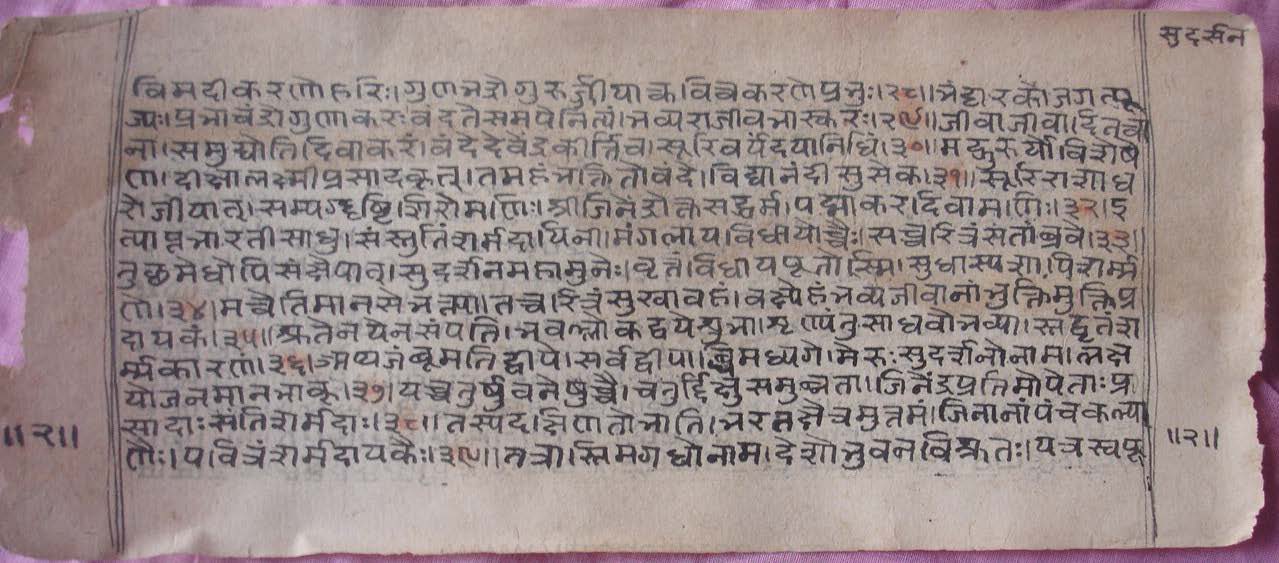 सुदर्सन
विमदीकरणेहरिः।गुणभद्रोगुरुर्जीयाकविवेकरणेप्रभुः।२८।भट्टारकोजगत्पू
ज्यःप्रभाचंद्रोगुणाकरःवंदतेसमयोनित्यं।भव्यराजीवभास्करः।२९।जीवाजीवादितत्वा
नां।समुद्योतिदिवाकरं।वंदेदेवेंद्रकीर्त्तिवासूरिवर्यंदयानिधिं।३०।मद्गुरुर्योविशेषे
ण।दीक्षालक्ष्मीप्रसादकृत्।तमहंभक्तितोवंदे।विद्यानंदीसुसेवक।३१।सूरिराशाध
रोजीयात्।सम्यग्दृष्टिशिरोमणिः।श्रीजिनेंद्रोक्तसद्धर्म।पद्माकरदिवामणिः।३२।इ
त्याप्तभारतीसाधु।संस्तुतिंशर्मदायिनी।मंगलायविधायोच्चैः।सच्चरित्रंसतांब्रुवे।३३।
तुछमेधोपिसंक्षेपात्।सुदर्शनमहामुनेः।वृतंविधायपूतोस्मि।सुधास्पर्शोपिशर्म्म
णे।३४।मत्वेतिमानसेभक्त्या।तच्चरित्रंसुखावहं।वक्ष्येहंभव्यजीवानांभुक्तिमुक्तिप्र
दायकं।३५।श्रुतेनयेनसंपत्ति।भवेल्लोकद्वयेशुभा।शृण्वंतुसाधवोभव्या।स्तद्वृतंश
र्म्मकारणं।३६।अथजंबूमतिद्वीपे।सर्वद्वीपाब्धिमध्यगे।मेरुःसुदर्शनोनामालक्ष
योजनमानभाक्।३७।यच्चतुर्षुवनेषुच्चै।चतुर्दिक्षुसमुन्नता।जिनेंद्रप्रतिमोपेताःप्र
सादाःसंतिशर्मदाः।३८।तस्यदक्षिणतोभाति।भरतक्षेत्रमुत्तमं।जिनानांपंचकल्या
णैः।पवित्रंशर्मदायकैः।३९।तत्रास्तिमगधोनाम।देशोभुवनविश्रुतः।यत्रस्वपू
॥२॥
॥२॥